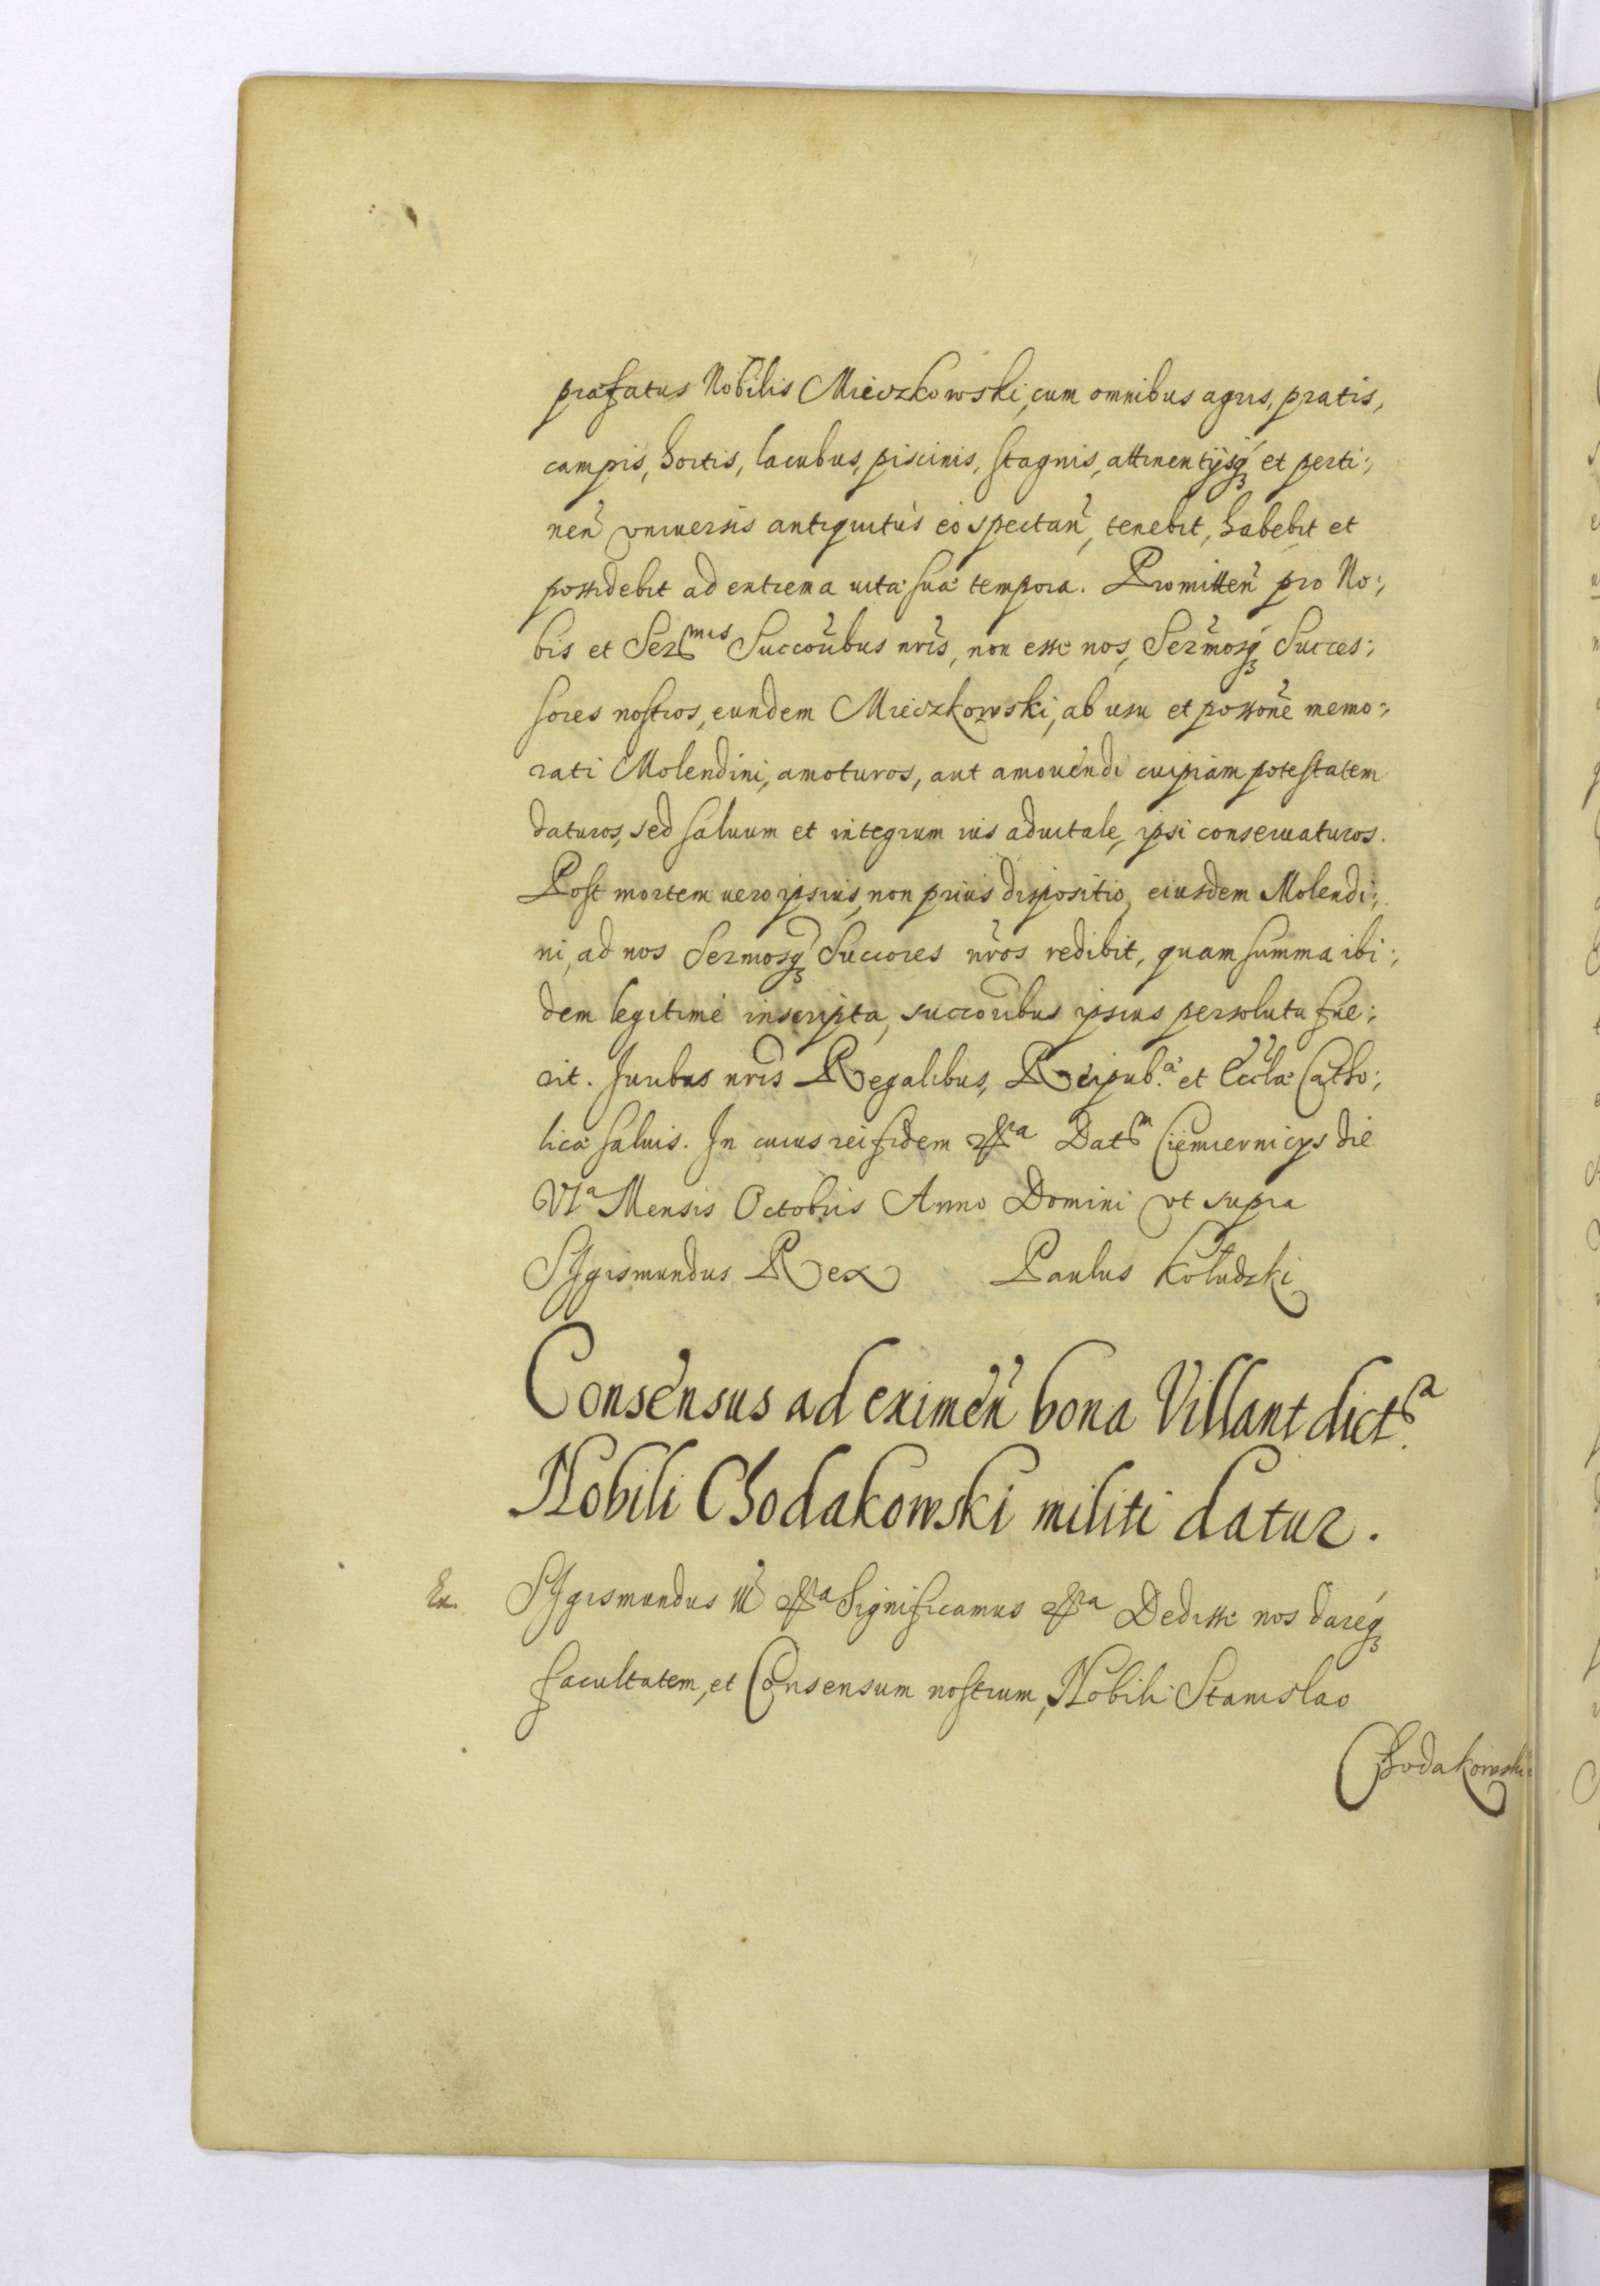 præfatus Nobilis Mieczkowski, cum omnibus agris, pratis,
campis, hortis, lacubus, piscinis, stagnis, attinentijsq3 et perti:,
neñ vniuersis antiquitùs eò spectañ, tenebit, habebit et
possidebit ad extrema uitæ suæ tempora. Promitteñ pro No:,
bis et Ser^mis Succoribus nris, non esse nos, Sermosq3 Succes:,
sores nostros, eundem Mieczkowski, ab usu et possone memo:,
rati Molendini, amoturos, aut amouendi cuipiam potestatem
daturos, sed saluum et integrum ius aduitale, ipsi conseruaturos.
Post mortem uero ipsius, non prius dispositio, eiusdem Molendi:,
ni, ad nos Sermosq3 Succores nros redibit, quam summa ibi:,
dem legitimè inscripta, succoribus ipsius persoluta fue:,
rit. Juribus nris Regalibus, Reipub.æ et Eccłæ Catho:,
licæ saluis. In cuius rei fidem &^a Dat^m Ciemiernicys die
VI^a Mensis Octobris Anno Domini vt supra
Sygismundus Rex Paulus Kołudzki
Consensus ad eximeñ bona Villant dict^a.
Nobili Chodakowski militi datur.
Ex. Sygismundus III &^a Significamus &^a Dedisse nos dareq3
facultatem, et Consensum nostrum, Nobili Stanislao
Chodakowski